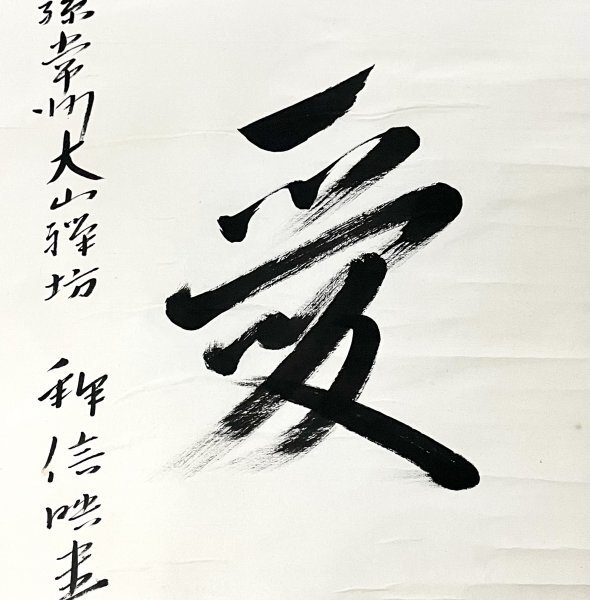 愛
常州大山禅坊 釋信映書